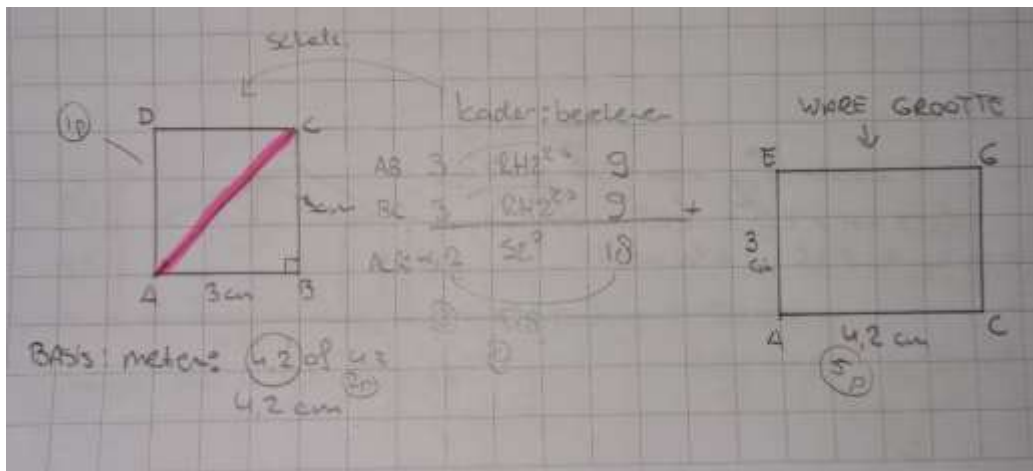 schets
1p
D C
A 3 cm B
kader: berekenen
AB 3 RHZ 9
BC 3 RHZ 9 +
AC ≈ 4,2 SZ 18
√18
BASIS: meten: 4,2 of 4,3
2p
4,2 cm
WARE GROOTTE
E G
3 cm
A 4,2 cm C
5p